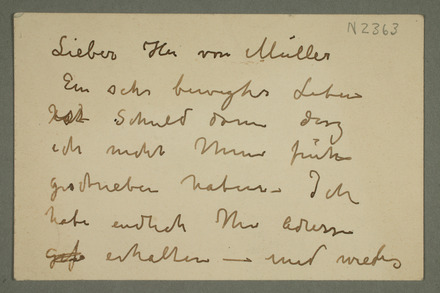 N2363
Lieber Herr von Müller
Ein sehr bewegtes Leben
ist Schuld daran dass
ich nicht Ihnen früher
geschrieben habe. Ich
habe endlich Ihre Adresse
erhalten — und wieder